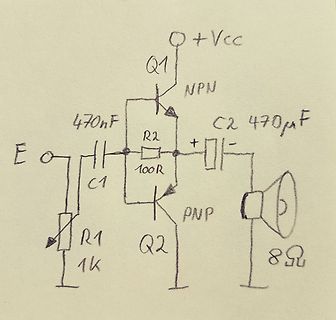 +Vcc
Q1
NPN
470nF
R2
C2 470µF
+ -
E
100R
C1
PNP
R1
1K
Q2
8Ω